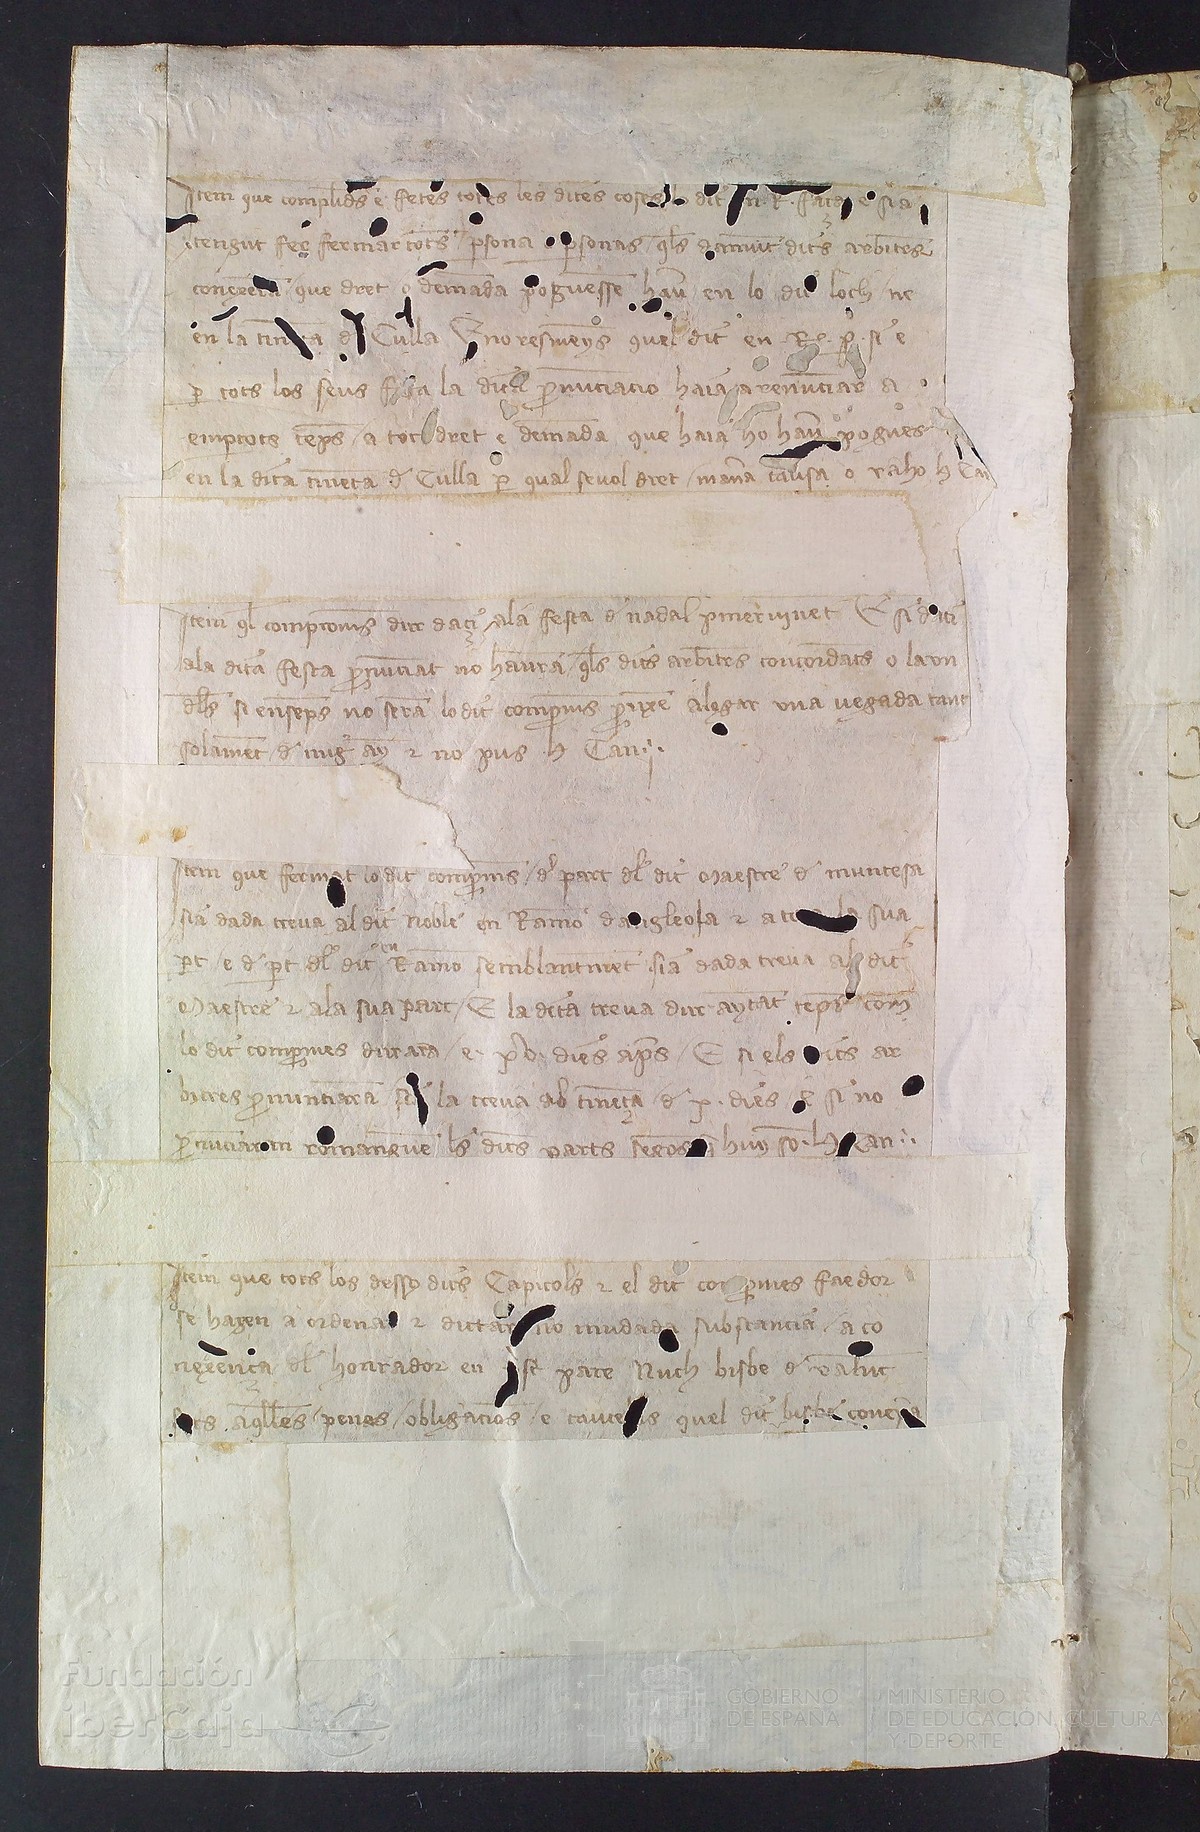 Item que complides e fetes totes les dites coses lo dit en R. faça e sia
tengut fer fermar tots psona o psonas qls damunt dits arbitres
conexeran que dret o demada poguessē hau en lo dit loch ne
en la tinēça d Culla E no resmenys quel dit en R. p si e
p tots los seus feta la dita pnunciacio haia a renunciar a
emptots temps a tot dret e demada que haia ho hau pogues
en la dita tinēça d Culla p qual sevol dret mana causa o raho
Item ql compromis dur daci ala festa d nadal pmer vinēt E si daci
ala dita festa pnunciat no haura qls dits arbitres concordats o la un
dlls si ensemps no sera lo dit compmis
alogar una vegada tant
solament d mig any e no pus
Item que fermat lo dit compmis d part dl dit Maestre d muntesa
sia dada treva al dit noble en Ramo danglesola e a tota la sua
pt e d pt dl dit en Ramo semblantmēt sia dada treva al dit
Maestre e ala sua part E la dita treva dur aytāt temps com
lo dit compmes durara e xv dies aps E si els dits ar
bitres pnunciaran sia la treva ab tinēça d x dies E si no
pnunciaran romanguē ls dits parts segos
Item que tots los desss dits Capitols e el dit compmes faedor
se hagen a ordenar e dictar no mudada substancia a co
nexença dl honrador en xst pare Nuch bisbe d Valenc
sots aqlles penes obligacions e cauteles quel dit bisbe conexera
Fundación
iberCaja
GOBIERNO
DE ESPAÑA
MINISTERIO
DE EDUCACIÓN, CULTURA
Y DEPORTE